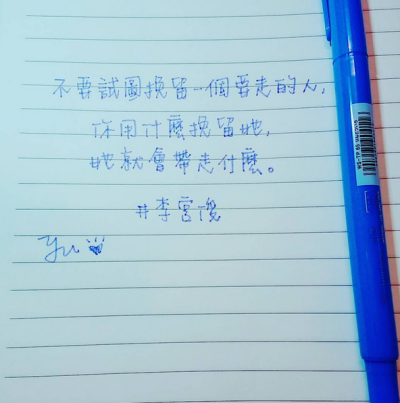 不要試圖挽留一個要走的人，
你用什麼挽留她，
她就會帶走什麼。
#李宮俊
Yu